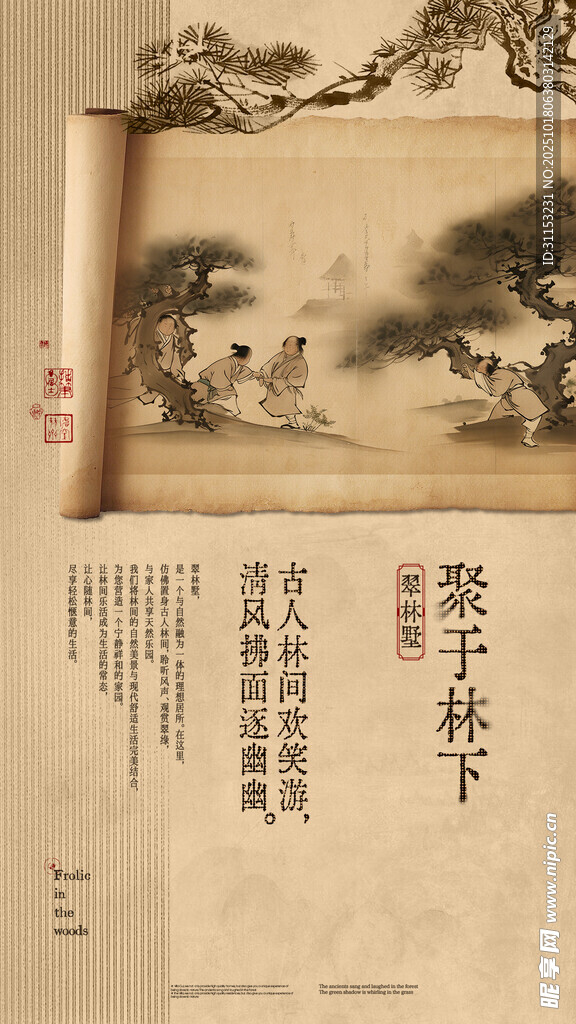 聚于林下
翠林墅
古人林间欢笑游，
清风拂面逐幽幽。
翠林墅，
是一个与自然融为一体的理想居所。在这里，
仿佛置身古人林间，聆听风声、观赏翠绿，
与家人共享天然乐园。
我们将林间的自然美景与现代舒适生活完美结合，
为您营造一个宁静祥和的家园。
让林间乐活成为生活的常态，
让心随林间，
尽享轻松惬意的生活。
Frolic
in
the
woods
The ancients sang and laughed in the forest
The green shadow is whirling in the grass
ID:31153231 NO:20251018063803142129
昵享网 www.nipic.cn